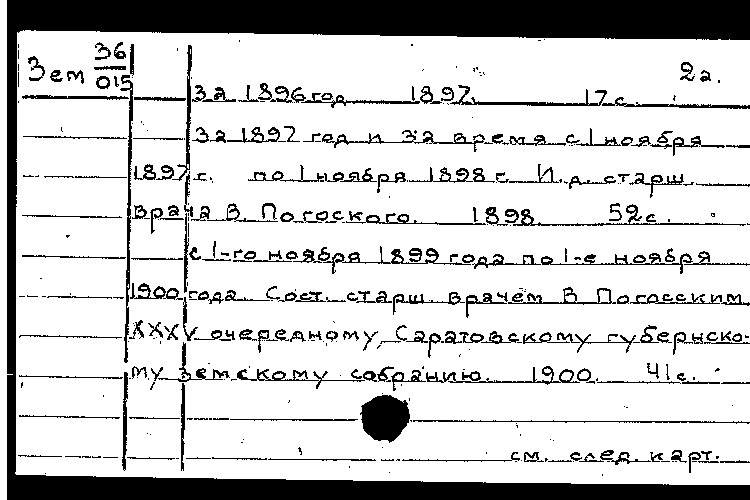 Зем 36/015
2а.
за 1896 год 1897. 17с.
За 1897 год и за время с 1 ноября
1897 г. по 1 ноября 1898 г. И.д. старш.
врача В. Погоского. 1898. 52с.
с 1-го ноября 1899 года по 1-е ноября
1900 года. Сост. старш. врачем В. Погосским
XXXV очередному Саратовскому губернско-
му земскому собранию. 1900. 41с.
см. след. карт.